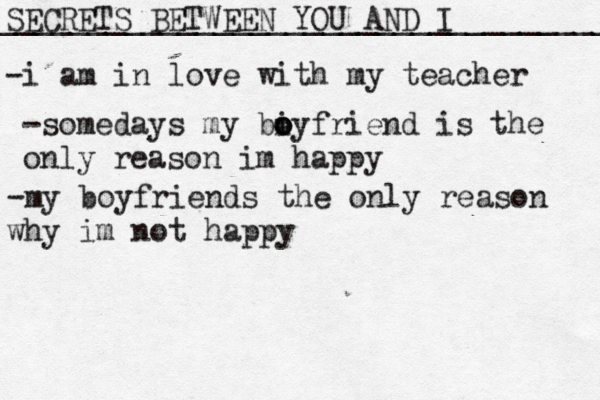 SECRETS BETWEEN YOU AND I
-i am in love with my teacher
-somedays my boyfriend is the
only reason im happy
-my boyfriends the only reason
why im not happy